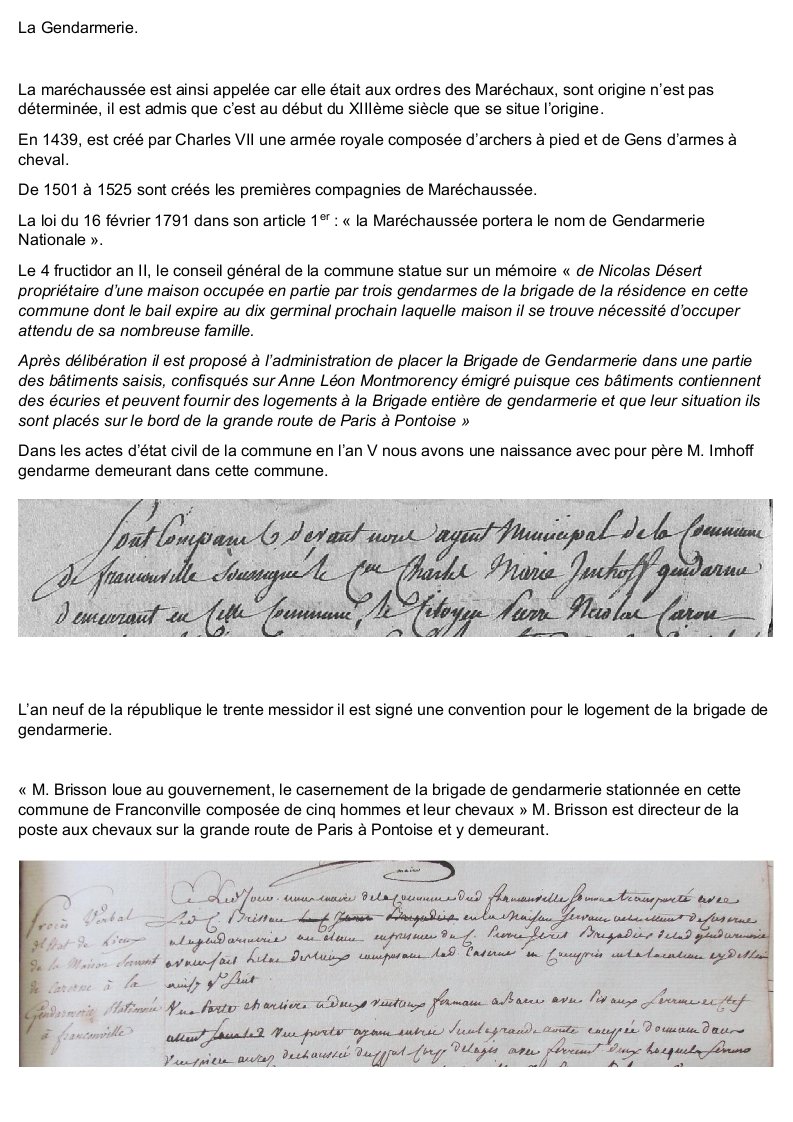 La Gendarmerie.
La maréchaussée est ainsi appelée car elle était aux ordres des Maréchaux, sont origine n’est pas
déterminée, il est admis que c’est au début du XIIIème siècle que se situe l’origine.
En 1439, est créé par Charles VII une armée royale composée d’archers à pied et de Gens d’armes à
cheval.
De 1501 à 1525 sont créés les premières compagnies de Maréchaussée.
La loi du 16 février 1791 dans son article 1er : « la Maréchaussée portera le nom de Gendarmerie
Nationale ».
Le 4 fructidor an II, le conseil général de la commune statue sur un mémoire « de Nicolas Désert
propriétaire d’une maison occupée en partie par trois gendarmes de la brigade de la résidence en cette
commune dont le bail expire au dix germinal prochain laquelle maison il se trouve nécessité d’occuper
attendu de sa nombreuse famille.
Après délibération il est proposé à l’administration de placer la Brigade de Gendarmerie dans une partie
des bâtiments saisis, confisqués sur Anne Léon Montmorency émigré puisque ces bâtiments contiennent
des écuries et peuvent fournir des logements à la Brigade entière de gendarmerie et que leur situation ils
sont placés sur le bord de la grande route de Paris à Pontoise »
Dans les actes d’état civil de la commune en l’an V nous avons une naissance avec pour père M. Imhoff
gendarme demeurant dans cette commune.
Sont Comparu devant nous agent Municipal de la Commune
de franconville Soussigné le Cen Charles Marie Imhoff gendarme
demeurant en Cette Commune, le Citoyen Pierre Nicolas Caron
L’an neuf de la république le trente messidor il est signé une convention pour le logement de la brigade de
gendarmerie.
« M. Brisson loue au gouvernement, le casernement de la brigade de gendarmerie stationnée en cette
commune de Franconville composée de cinq hommes et leur chevaux » M. Brisson est directeur de la
poste aux chevaux sur la grande route de Paris à Pontoise et y demeurant.
maire
Procès Verbal
d'Etat de Lieux
de la Maison Servant
de Caserne à la
Gendarmerie Stationnée
à franconville
Ce Jour nous maire de la Commune dud franconville Sommes transporté avec
Led C. Brisson en la Maison Servant actuellement de Caserne
a la gendarmerie Brigadier de lad gendarmerie
avons fait des lieux composant lad Caserne
Une Porte chartiere a deux Ventaux fermant a Barre avec Ferrure et Clef
Une porte